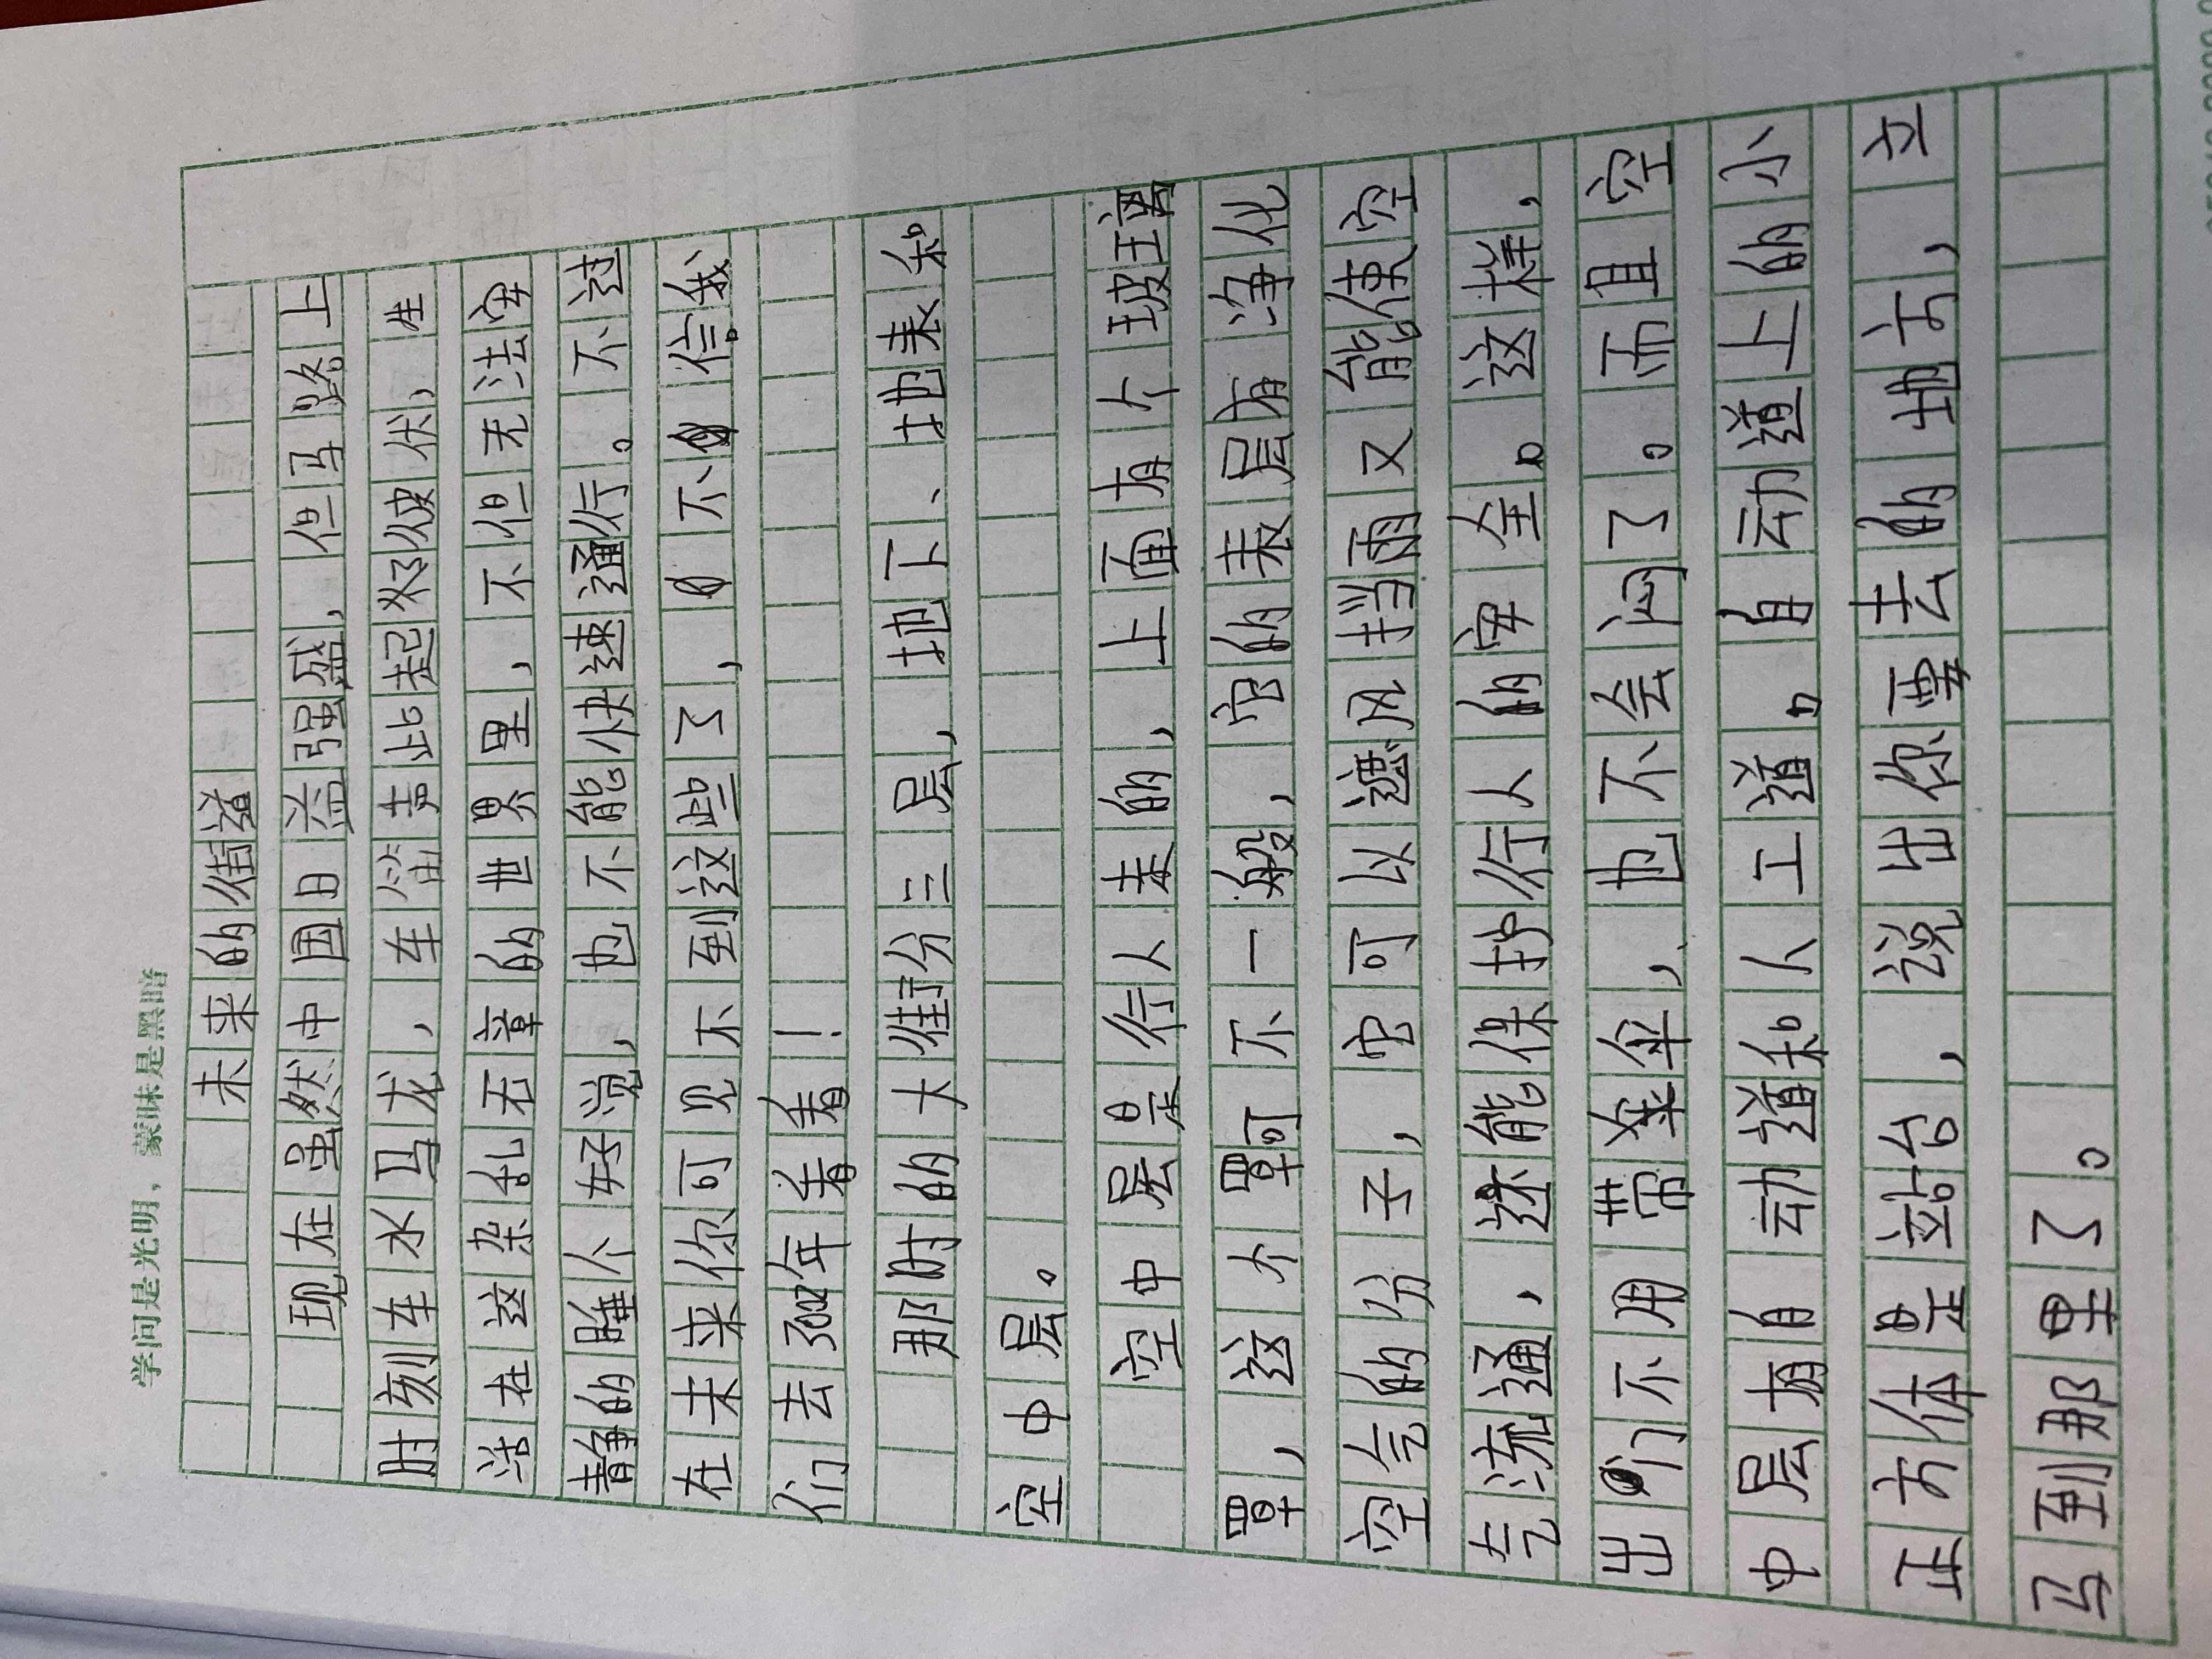 学问是光明，蒙昧是黑暗
未来的街道
现在虽然中国日益强盛，但马路上
时刻车水马龙，车笛声此起彼伏，生
活在这杂乱无章的世界里，不但无法安
静的睡个好觉，也不能快速通行。不过
在未来你可见不到这些了，不信我
们去302年看看！
那时的大街分三层，地下、地表和
空中层。
空中层是行人走的，上面有个玻璃
罩，这个罩可不一般，它的表层有净化
空气的分子，它可以遮风挡雨又能使空
气流通，还能保护行人的安全。这样，
出门不用带伞，也不会闷了。而且空
中层有自动道和人工道。自动道上的小
正方体是站台，说出你要去的地方，立
马到那里了。